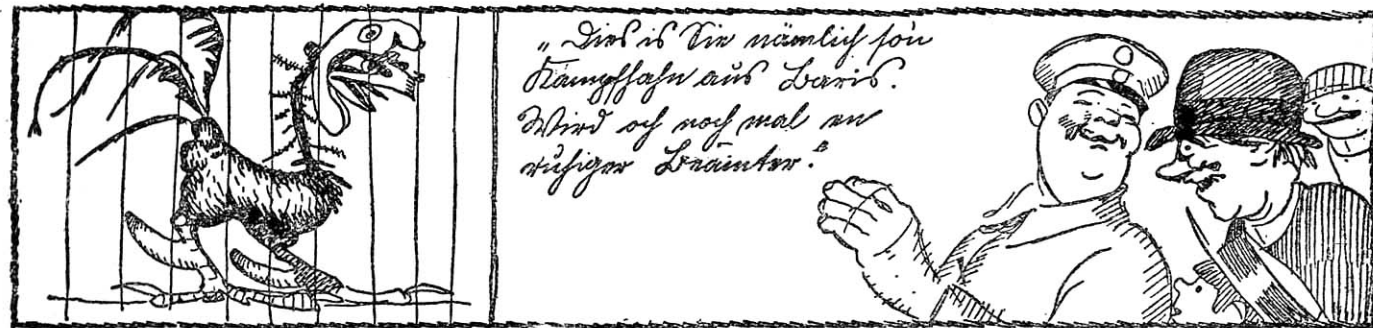 „Dies is Sie nämlich son
Kampfhahn aus Baris.
Wird och noch mal en
ruhiger Beamter.“